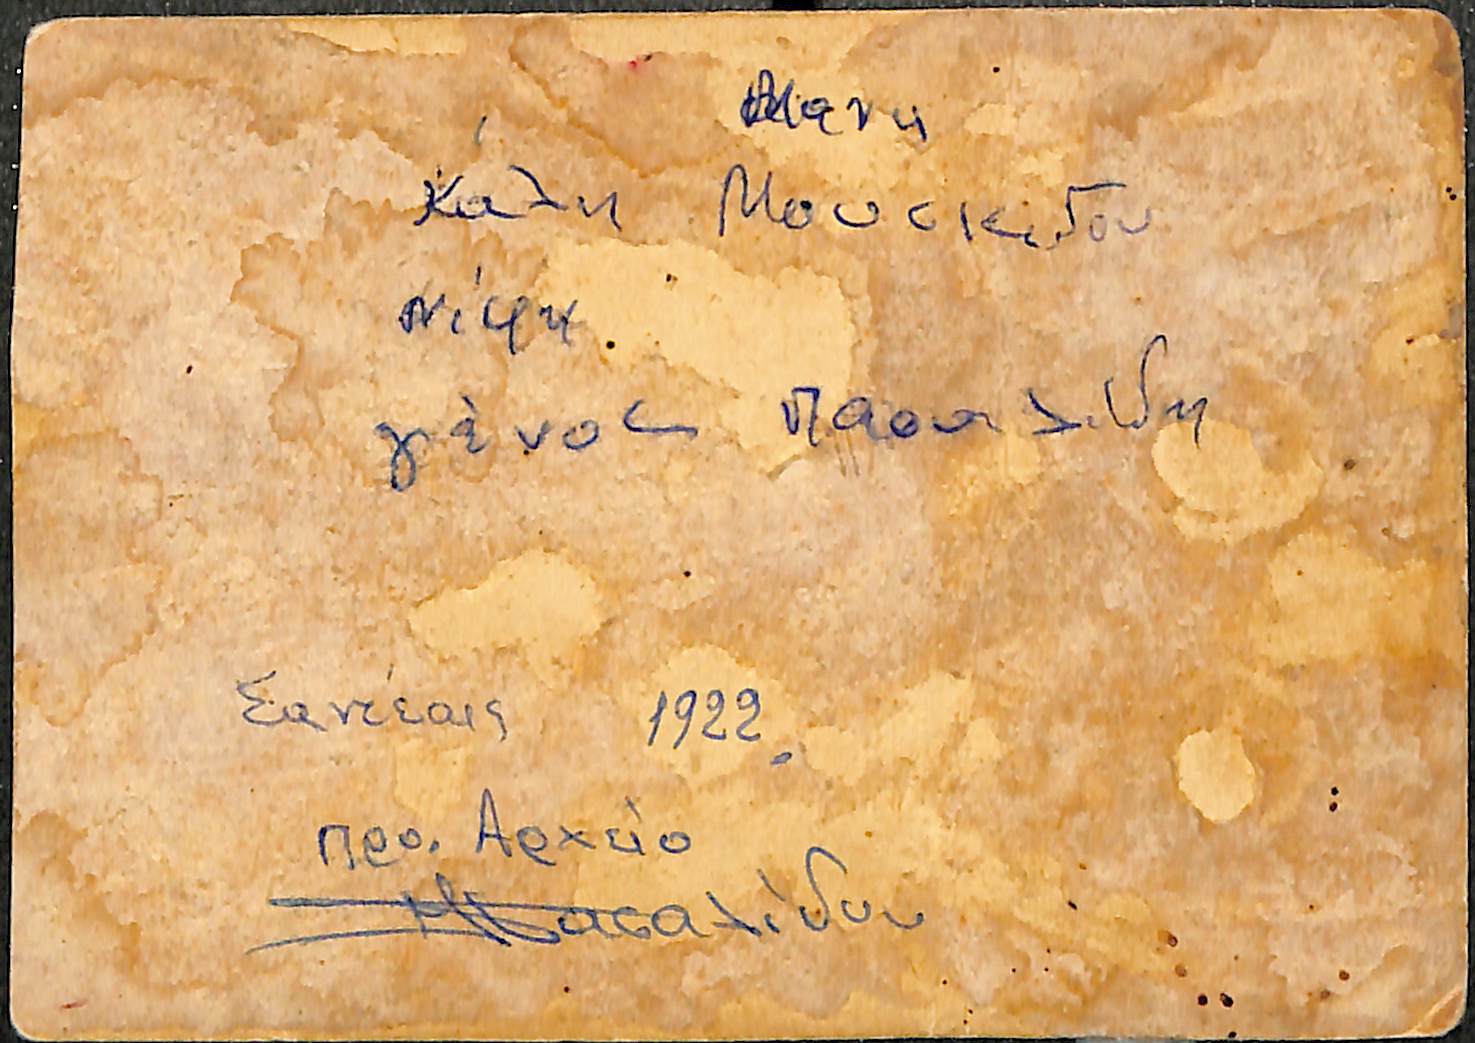 Μανη
Κάλη Μουσκίδου
Νίφη
γιάνος πασαλιδη
Σαντέαις 1922.
προ. Αρχείο
Πασαλίδων